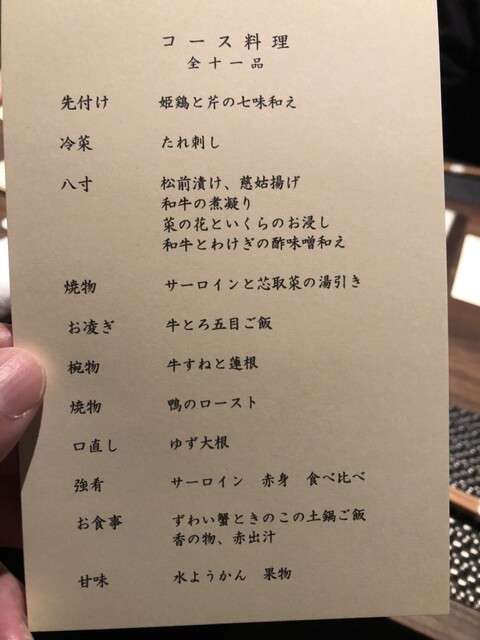 コース料理
全十一品
先付け 姫鶏と芹の七味和え
冷菜 たれ刺し
八寸 松前漬け、慈姑揚げ
和牛の煮凝り
菜の花といくらのお浸し
和牛とわけぎの酢味噌和え
焼物 サーロインと芯取菜の湯引き
お凌ぎ 牛とろ五目ご飯
椀物 牛すねと蓮根
焼物 鴨のロースト
口直し ゆず大根
強肴 サーロイン 赤身 食べ比べ
お食事 ずわい蟹ときのこの土鍋ご飯
香の物、赤出汁
甘味 水ようかん 果物